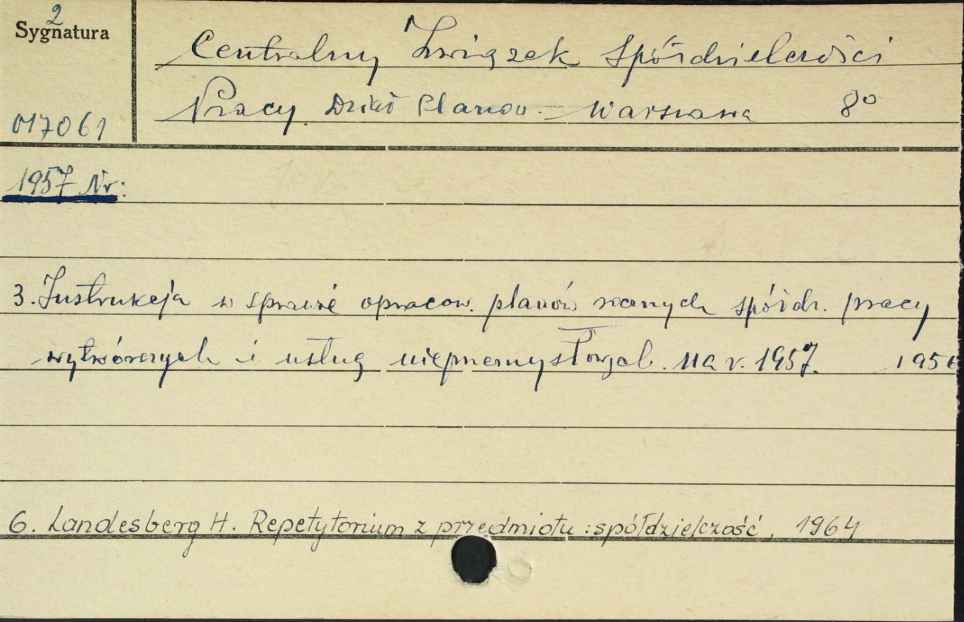 2
Sygnatura
017061
Centralny Związek Spółdzielczości
Pracy. Dział Planow. — Warszawa 8°
1957 Nr:
3. Instrukcja w sprawie opracow. planów rocznych spółdz. pracy
wytwórczych i usług nieprzemysłowych. na r. 1957. 1956
6. Landesberg H. Repetytorium z przedmiotu: spółdzielczość, 1964